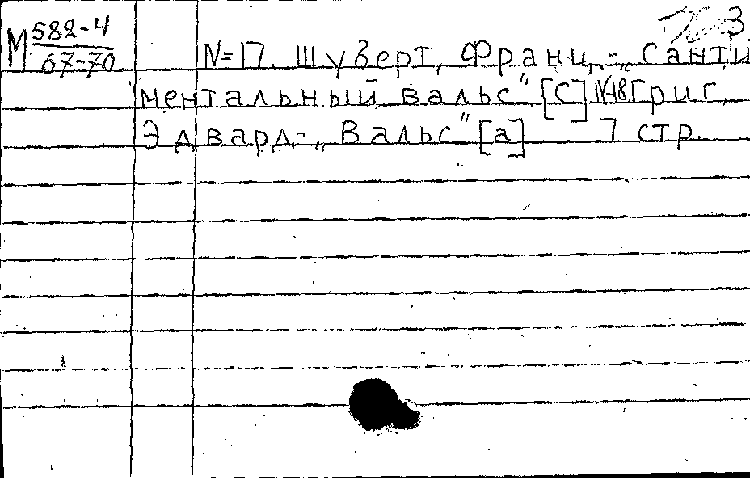 3
М 582-4
67-70
N=17. Шуверт, Франц.-„Санти
ментальный вальс" [C] №18 Григ,
Эдвард-„Вальс" [a] 7 стр.